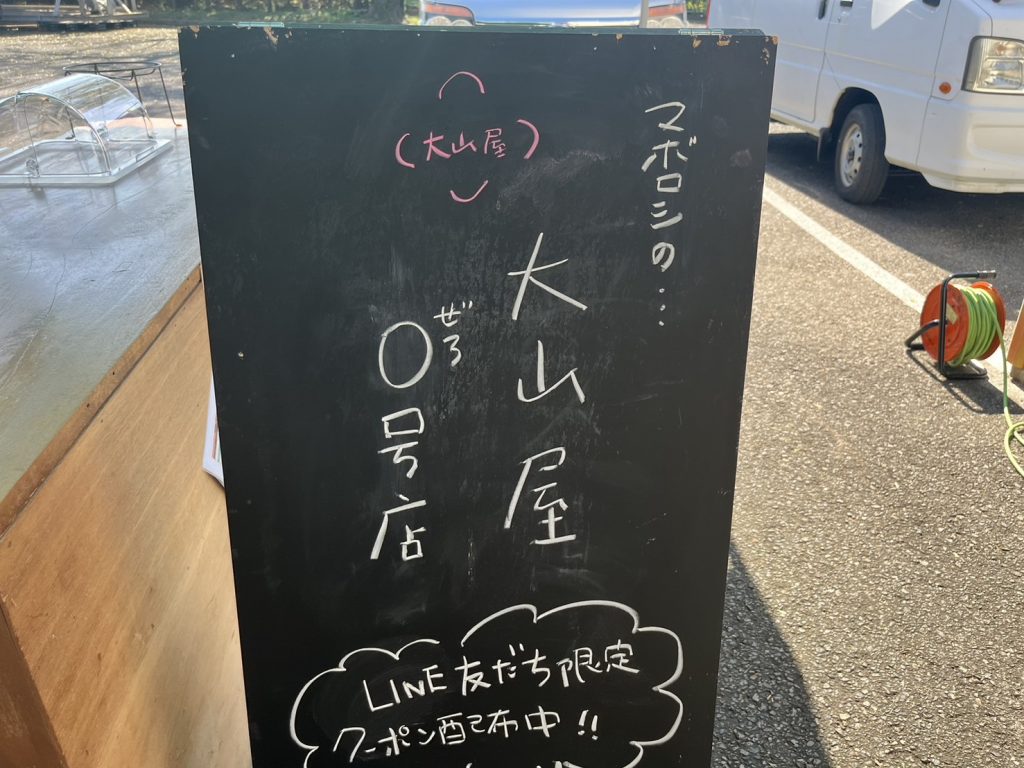 (大山屋)
マボロシの...
大山屋
ぜろ
0号店
LINE友だち限定
クーポン配布中!!